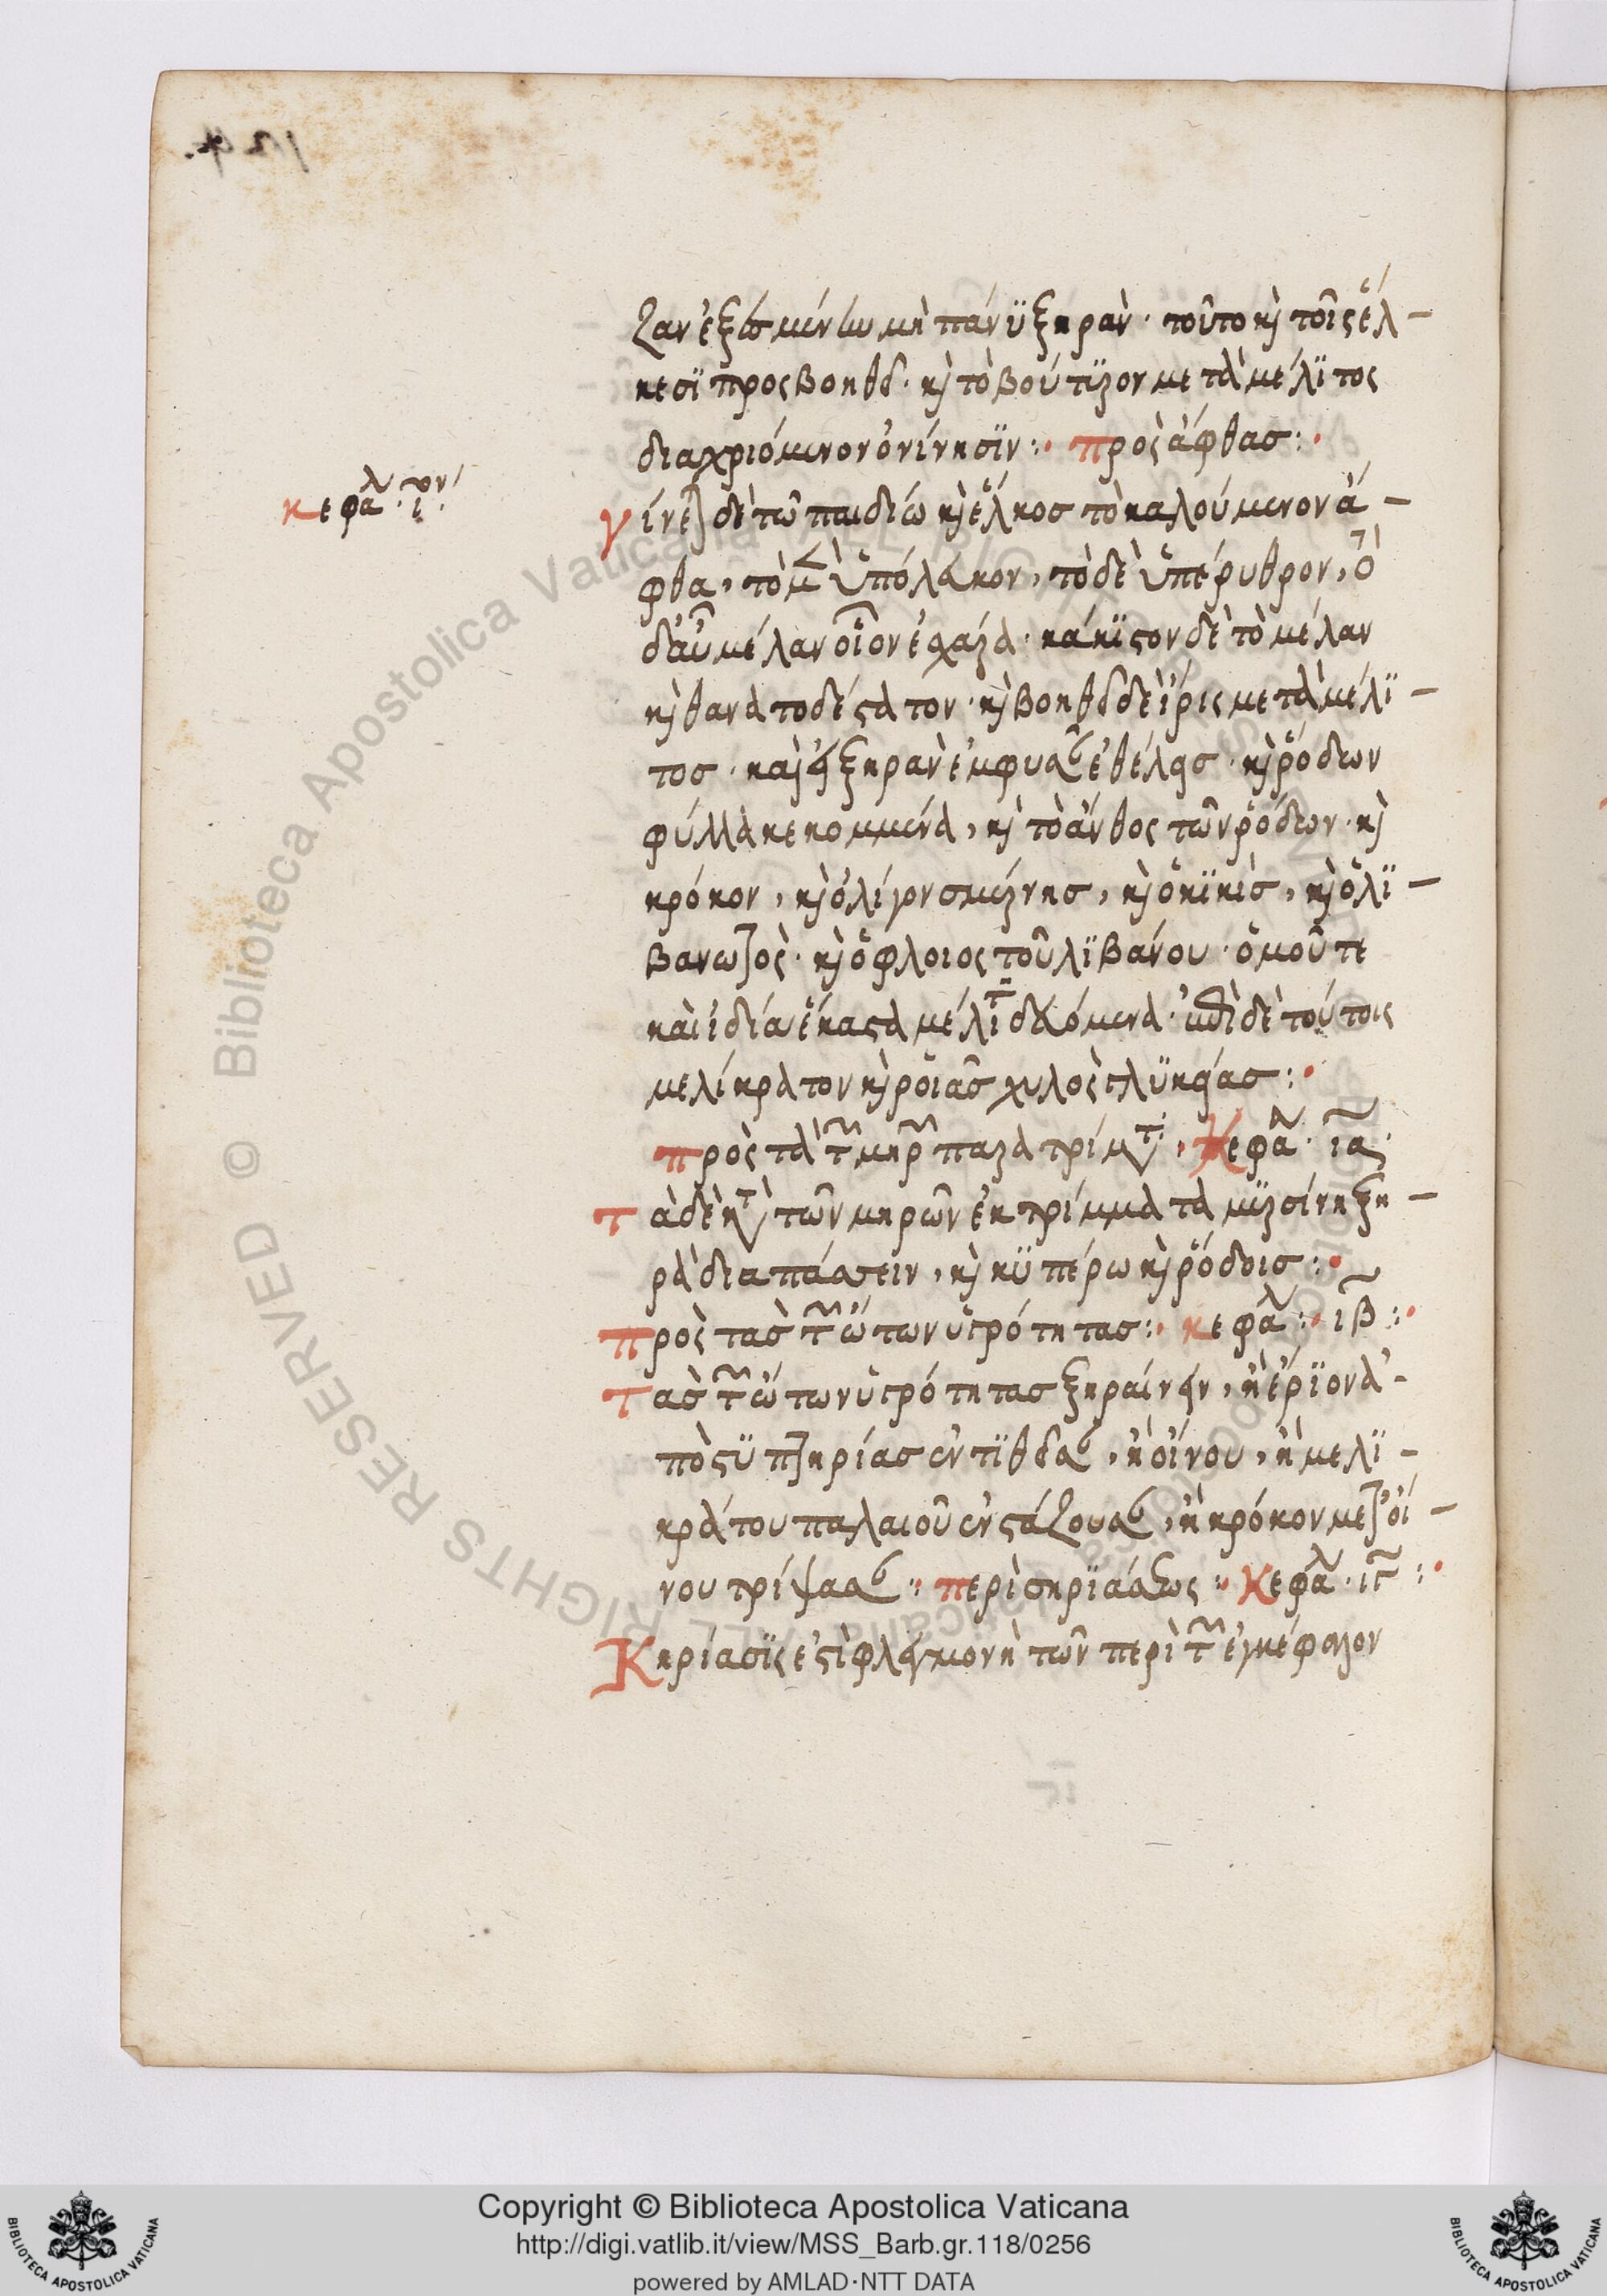 ζαν ἐξωσμένην μὴ πάνϋ ξηρὰν· τοῦτο κὶ τοῖς ἕλ-
κεσϊ προςβοηθεῖ· κὶ τὸ βούτϊρον μετὰ μέλϊτος
διαχριόμενον ὀνίνησϊν:· πρὸς ἄφθας:·
κεφαλ· ιον
γίνεται δὲ τῶ παιδίω κὶ ἕλκος τὸ καλούμενον ἄ-
φθα, τὸ μὲν ὑπόλευκον, τὸ δὲ ὑπέρυθρον, ὃ
δ' αὖ μέλαν οἷον ἐσχάρα· κάκϊστον δὲ τὸ μέλαν
κὶ θανατοδέστατον· κὶ βοηθεῖ δὲ ἶρις μετὰ μέλϊ-
τος· καὶ εἰ ξηρὰν ἐμφυσᾶν ἐθέλεις· κὶ ῥόδων
φύλλα κεκομμένα, κὶ τὸ ἄνθος τῶν ῥόδων· κὶ
κρόκον, κὶ ὀλίγον σμύρνης, κὶ ὁ κϊκὶς, κὶ ὁ λϊ-
βανωτὸς· κὶ ὁ φλοιος τοῦ λϊβάνου· ὁμοῦ τε
καὶ ἰδία ἕκαστα μέλιτι δευόμενα· ἐπὶ δὲ τούτοις
μελίκρατον κὶ ῥοϊᾶς χυλὸς γλϋκείας:·
πρὸς τὰ τῶν μηρῶν παρατρίμματα, Κεφαλ· ια·
τὰ δὲ κατὰ τῶν μηρῶν ἐκτρίμματα μυρσίνη ξη-
ρὰ διαπάσσειν, κὶ κϋπέρω κὶ ῥόδοις:·
πρὸς τὰς τῶν ὤτων ὑγρότητας:· κεφαλ:· ιβ:·
τὰς τῶν ὤτων ὑγρότητας ξηραίνειν, ἢ ἔρϊον ἀ-
πὸ στϋπτηρίας ἐντϊθεῖσαν, ἢ οἴνου, ἢ μελϊ-
κράτου παλαιοῦ ἐνστάζουσαν, ἢ κρόκον μετ' οἴ-
νου τρίψασαν:· περὶ σηρϊάσεως:· Κεφαλ· ιγ:·
Κηρίασϊς ἐστὶ φλεγμονὴ τῶν περὶ τὸν ἐγκέφαλον
Copyright © Biblioteca Apostolica Vaticana
http://digi.vatlib.it/view/MSS_Barb.gr.118/0256
powered by AMLAD·NTT DATA